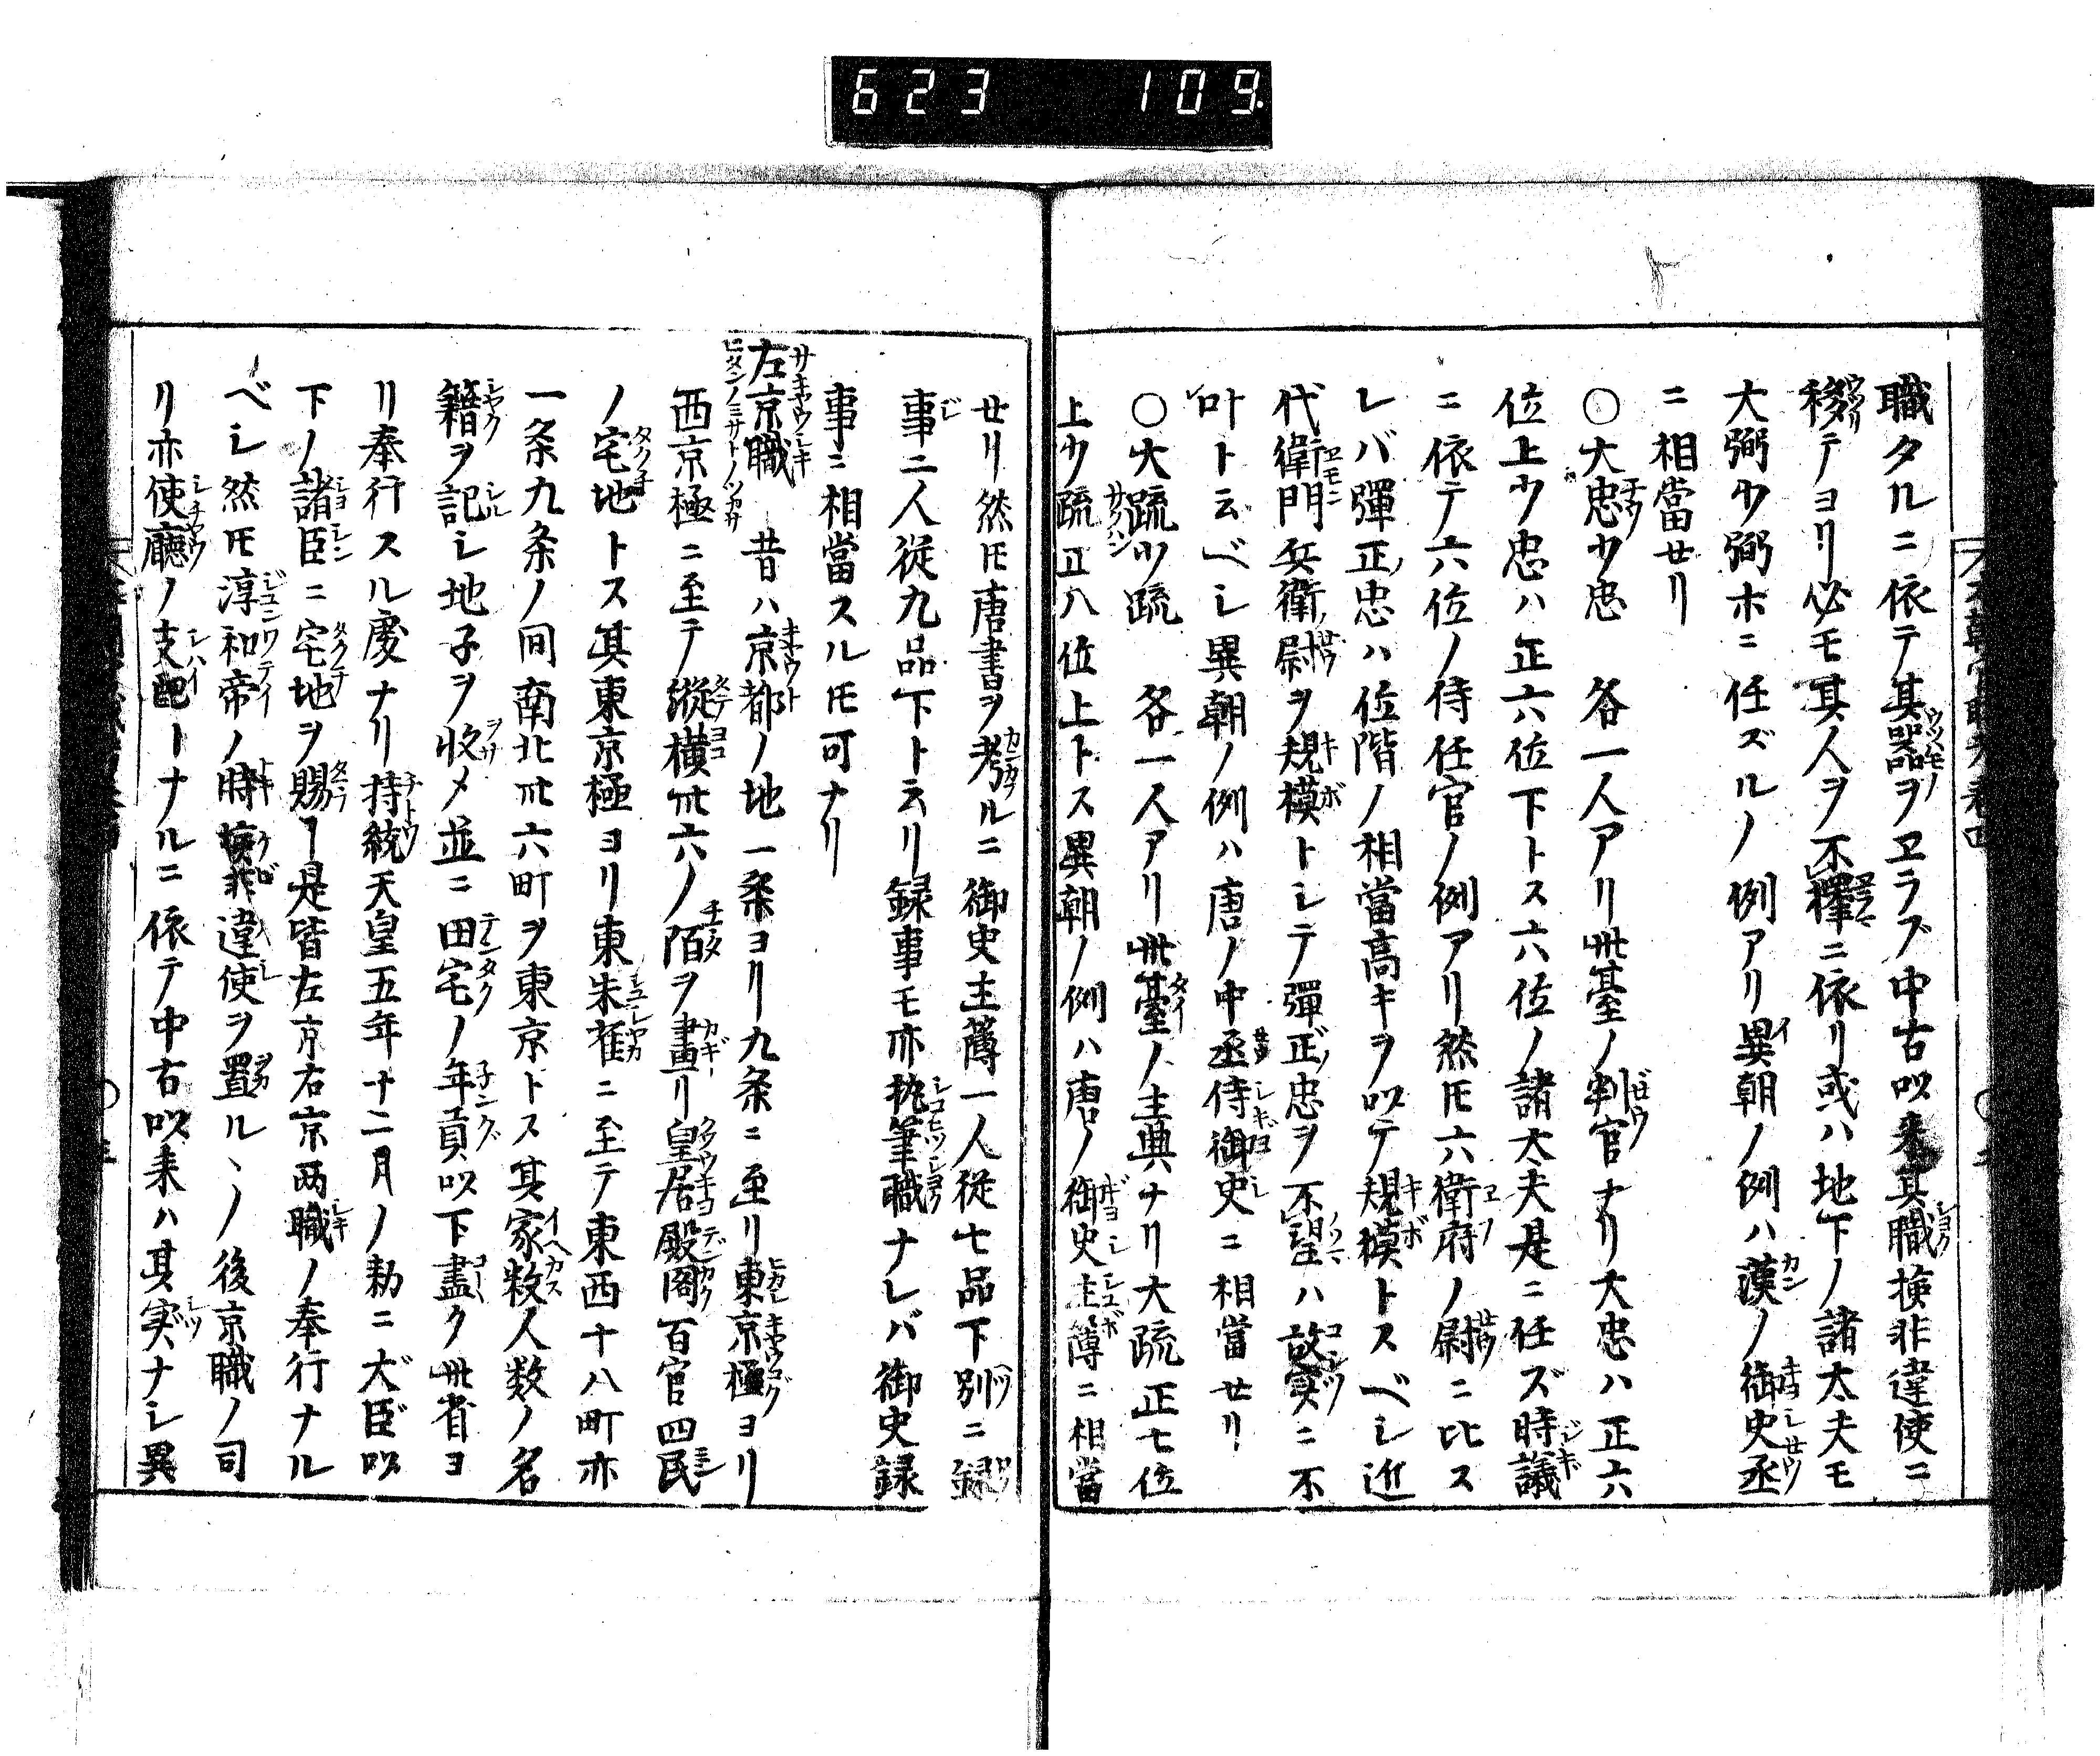 623 109
職タルニ依テ其器ヲヱラブ中古以来其職検非違使ニ
移テヨリ必モ其人ヲ不擇ニ依リ或ハ地下ノ諸太夫モ
大弼少弼ホニ任ズルノ例アリ異朝ノ例ハ漢ノ御史丞
ニ相當せリ
〇大忠少忠 各一人アリ此臺ノ判官ナリ大忠ハ正六
位上少忠ハ正六位下トス六位ノ諸太夫是ニ任ズ時議
ニ依テ六位ノ侍任官ノ例アリ然𪜈六衛府ノ尉ニ比ス
レバ彈正忠ハ位階ノ相當高キヲ以テ規模トスベシ近
代衛門兵衛ノ尉ヲ規模トシテ彈正ノ忠ヲ不望ハ故実ニ不
叶ト云ベシ異朝ノ例ハ唐ノ中丞侍御史ニ相當せリ
〇大疏少疏 各一人アリ此臺ノ主典ナリ大疏正七位
上少疏正八位上トス異朝ノ例ハ唐ノ御史主簿ニ相當
せリ然𪜈唐書ヲ考ルニ御史主簿一人従七品下別ニ録
事二人従九品下ト云リ録事モ亦執筆職ナレバ御史録
事ニ相當スル𪜈可ナリ
左京職 昔ハ京都ノ地一条ヨリ九条ニ至リ東京極ヨリ
西京極ニ至テ縦横卅六ノ陌ヲ畫リ皇居殿閣百官四民
ノ宅地トス其東京極ヨリ東朱雀ニ至テ東西十八町亦
一条九条ノ间南北卅六町ヲ東京トス其家数人数ノ名
籍ヲ記シ地子ヲ收メ並ニ田宅ノ年貢以下盡ク此省ヨ
リ奉行スル慶ナリ持統天皇五年十二月ノ勅ニ大臣以
下ノ諸臣ニ宅地ヲ賜フ是皆左京右京两職ノ奉行ナル
ベシ然𪜈淳和帝ノ時検非違使ヲ置ルヽノ後京職ノ司
リ亦使廳ノ支配トナルニ依テ中古以来ハ其実ナシ異